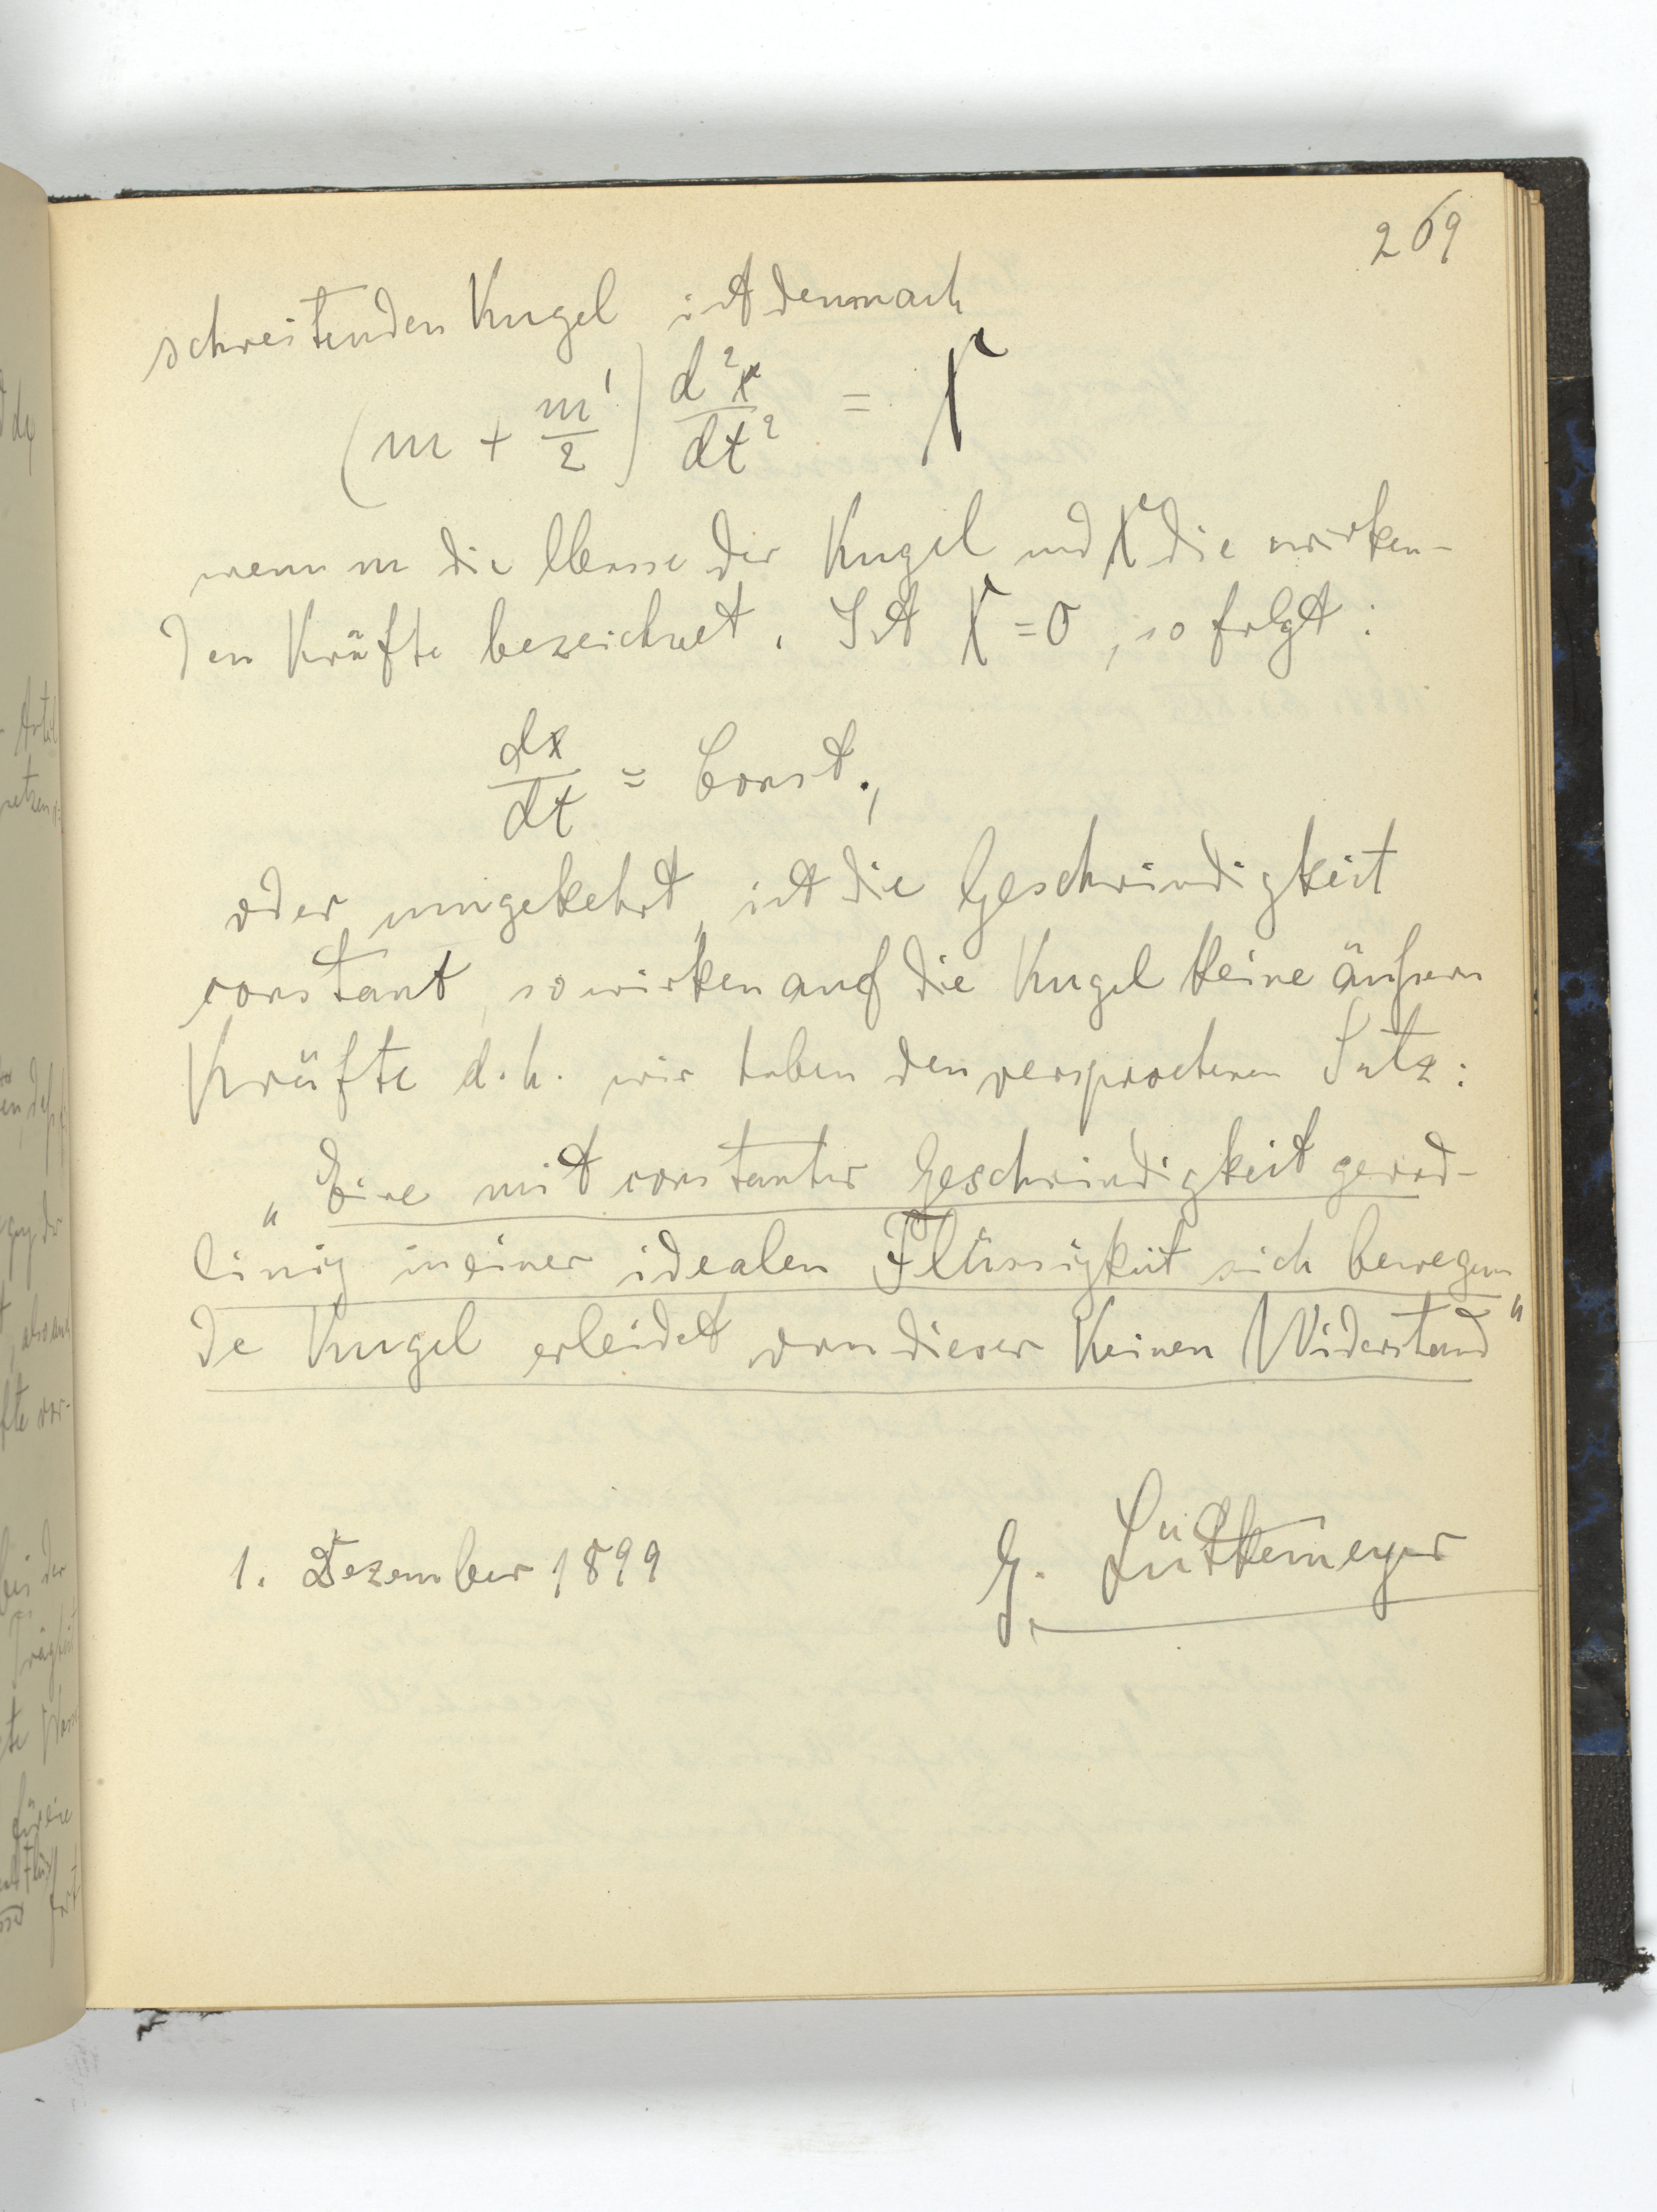 269
schreitenden Kugel ist demnach
(m + m'/2) d²x/dt² = X
wenn m die Masse der Kugel und X die wirken-
den Kräfte bezeichnet. Ist X = 0, so folgt:
dx/dt = Const.,
oder umgekehrt, ist die Geschwindigkeit
constant, so wirken auf die Kugel keine äußern
Kräfte d.h. wir haben den versprochenen Satz:
„Eine mit constanter Geschwindigkeit gerad-
linig in einer idealen Flüssigkeit sich bewegen
de Kugel erleidet von dieser keinen Widerstand"
1. Dezember 1899
G. Lüttemeyer